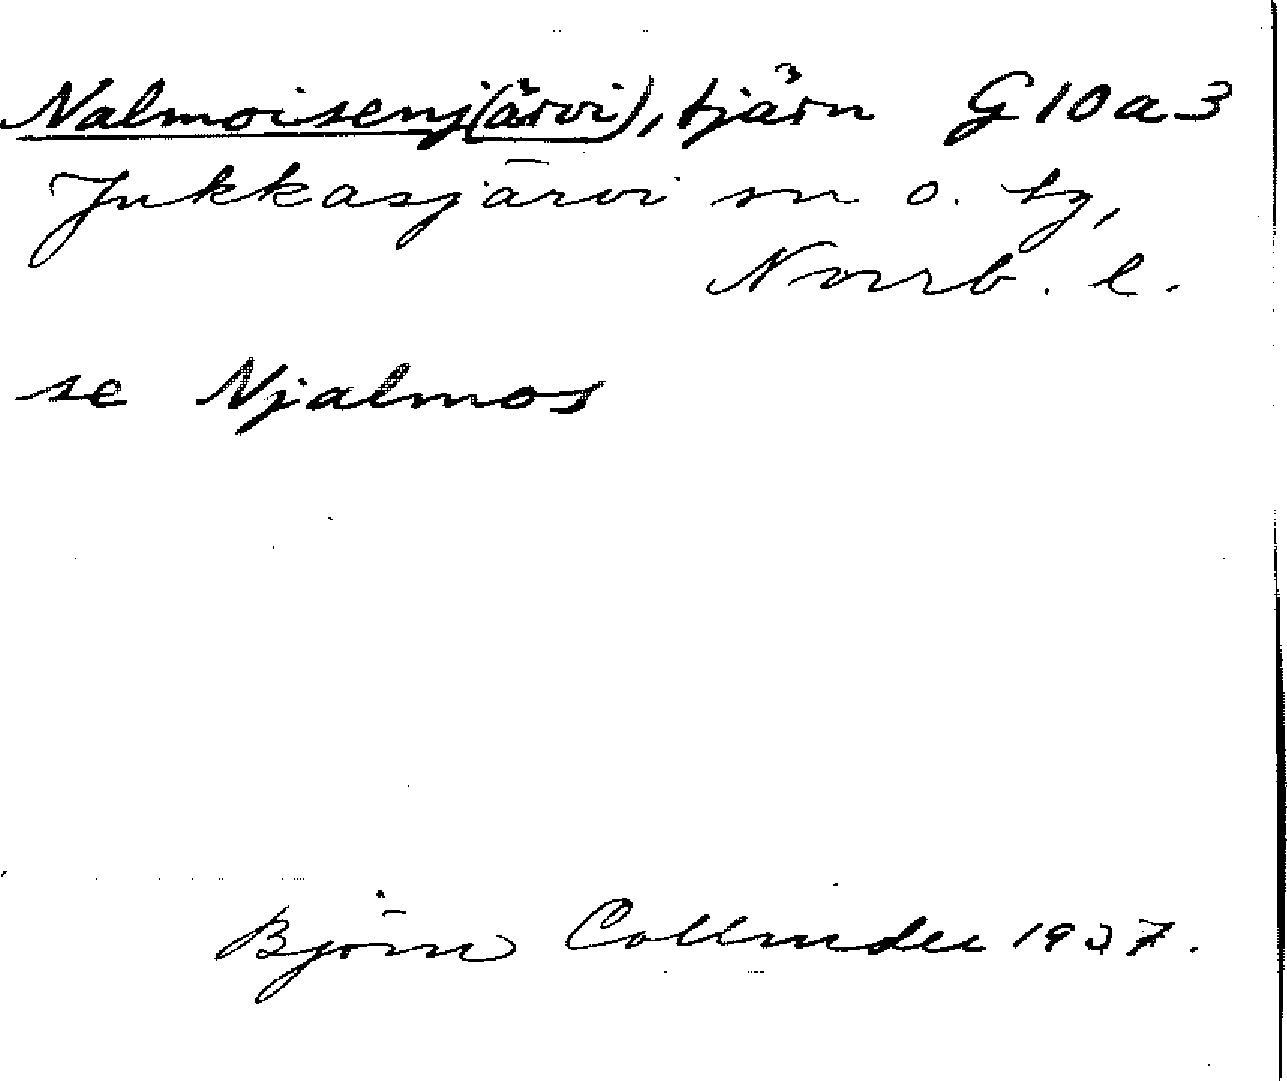 Nalmoisenj(ärvi), tjärn G 10 a 3
Jukkasjärvi sn o. tg,
Norrb. l.
se Njalmos
Björn Collinder 1937.